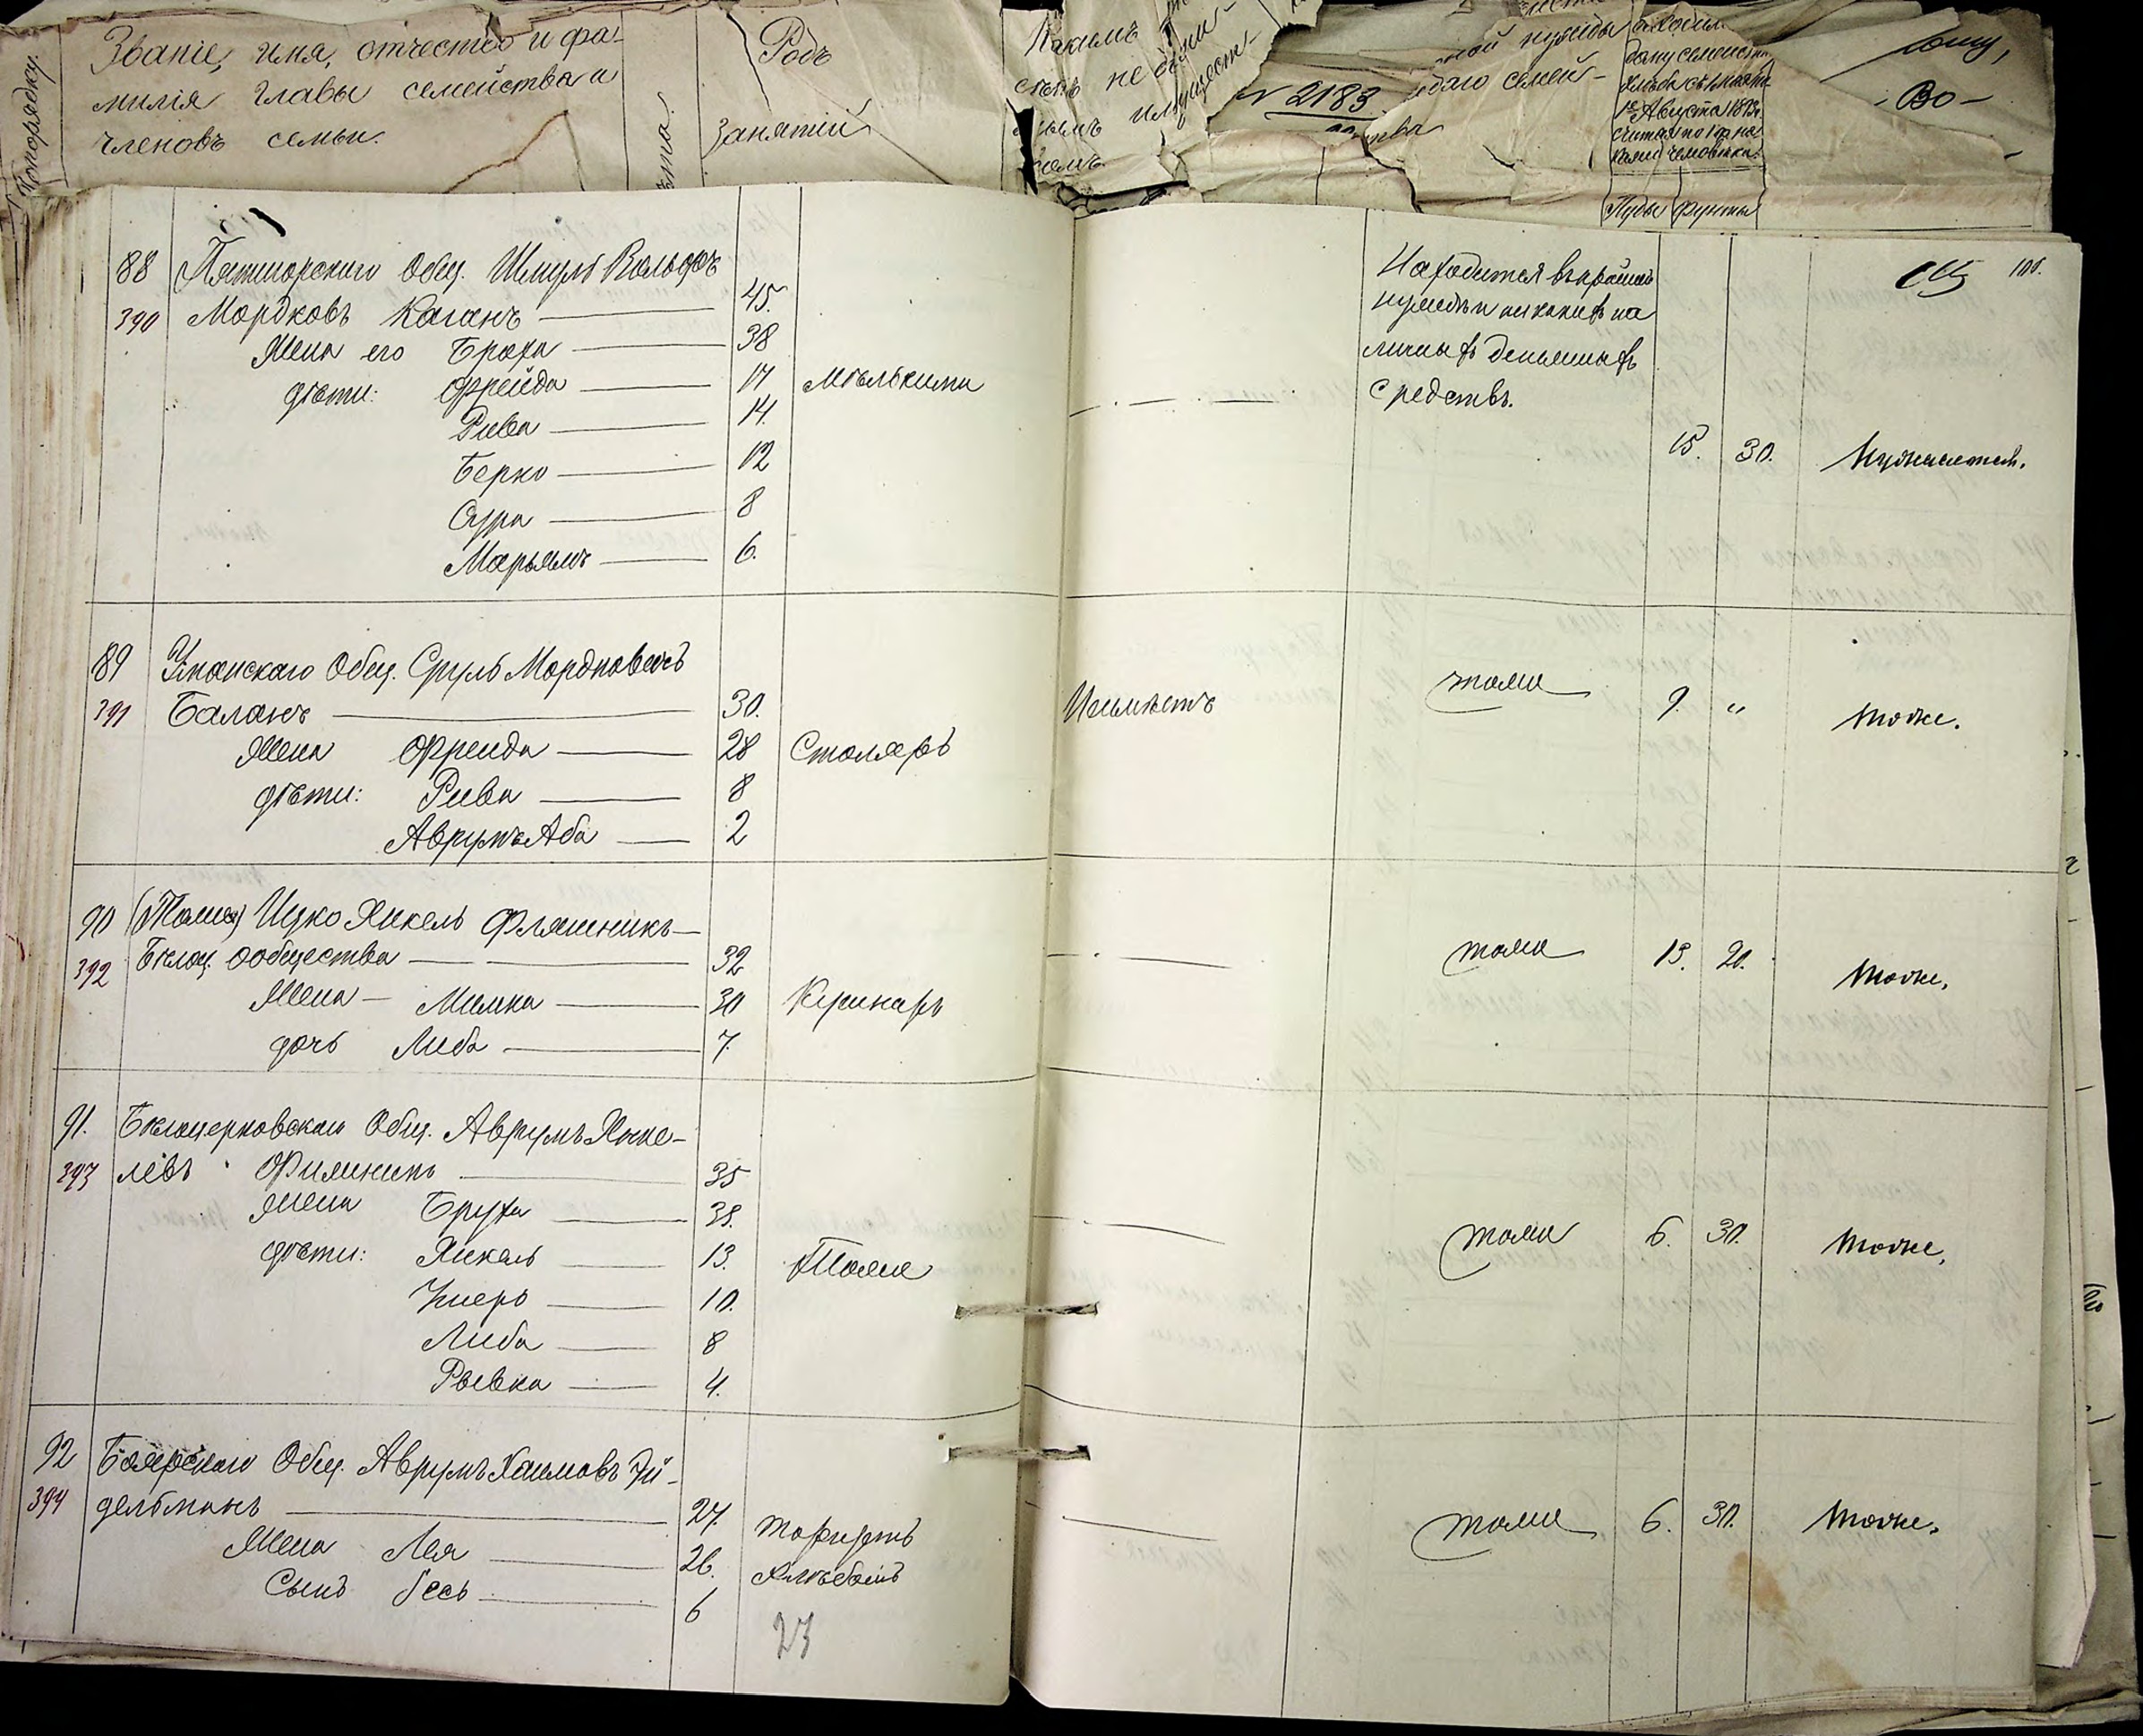 По порядку.
Званіе, имя, отчество и фа-
милія главы семейства и
членовъ семьи.
Родъ
занятій
Какимъ
не
имущест-
№ 2183
ной нужды
семей-
ства
Августа
считая по 1 ф. на
человѣка.
Пуды фунты
88 Пятигорскаго Общ. Шмуль Вольфъ
390 Мордковъ Каганъ 45.
Жена его Броха 38
дѣти: Фрейда 17
Рива 14.
Берко 12
Сура 8
Марьямъ 6.
Мѣлькими
Находится въ крайней
нуждѣ и никакихъ на
личныхъ денежныхъ
средствъ.
15. 30. Нуждается.
115
89 Уманскаго Общ. Сруль Мордковичъ
391 Баланъ 30.
Жена Фрейда 28
дѣти: Рива 8
Аврумъ Аба 2
Столяръ
Неимѣетъ
тоже 9. " тоже.
90 (Тоже) Ицко Янкель Фляшникъ
392 Бѣлоц. общества 32
Жена Малка 30
дочь Либа 7.
тоже 13. 20. тоже.
91. Бѣлоцерковскаго Общ. Аврумъ Янке-
393 левъ 35
Жена Бруха 38.
дѣти: Янкель 13.
10.
Либа 8
Рывка 4.
Тоже
тоже 6. 30. тоже.
92 Боярскаго Общ. Аврумъ Хаимовъ Эй-
394 дельманъ 27.
Жена Лея 26.
Сынъ Іось 6
торгуетъ
хлѣбомъ
тоже 6. 30. тоже.
23